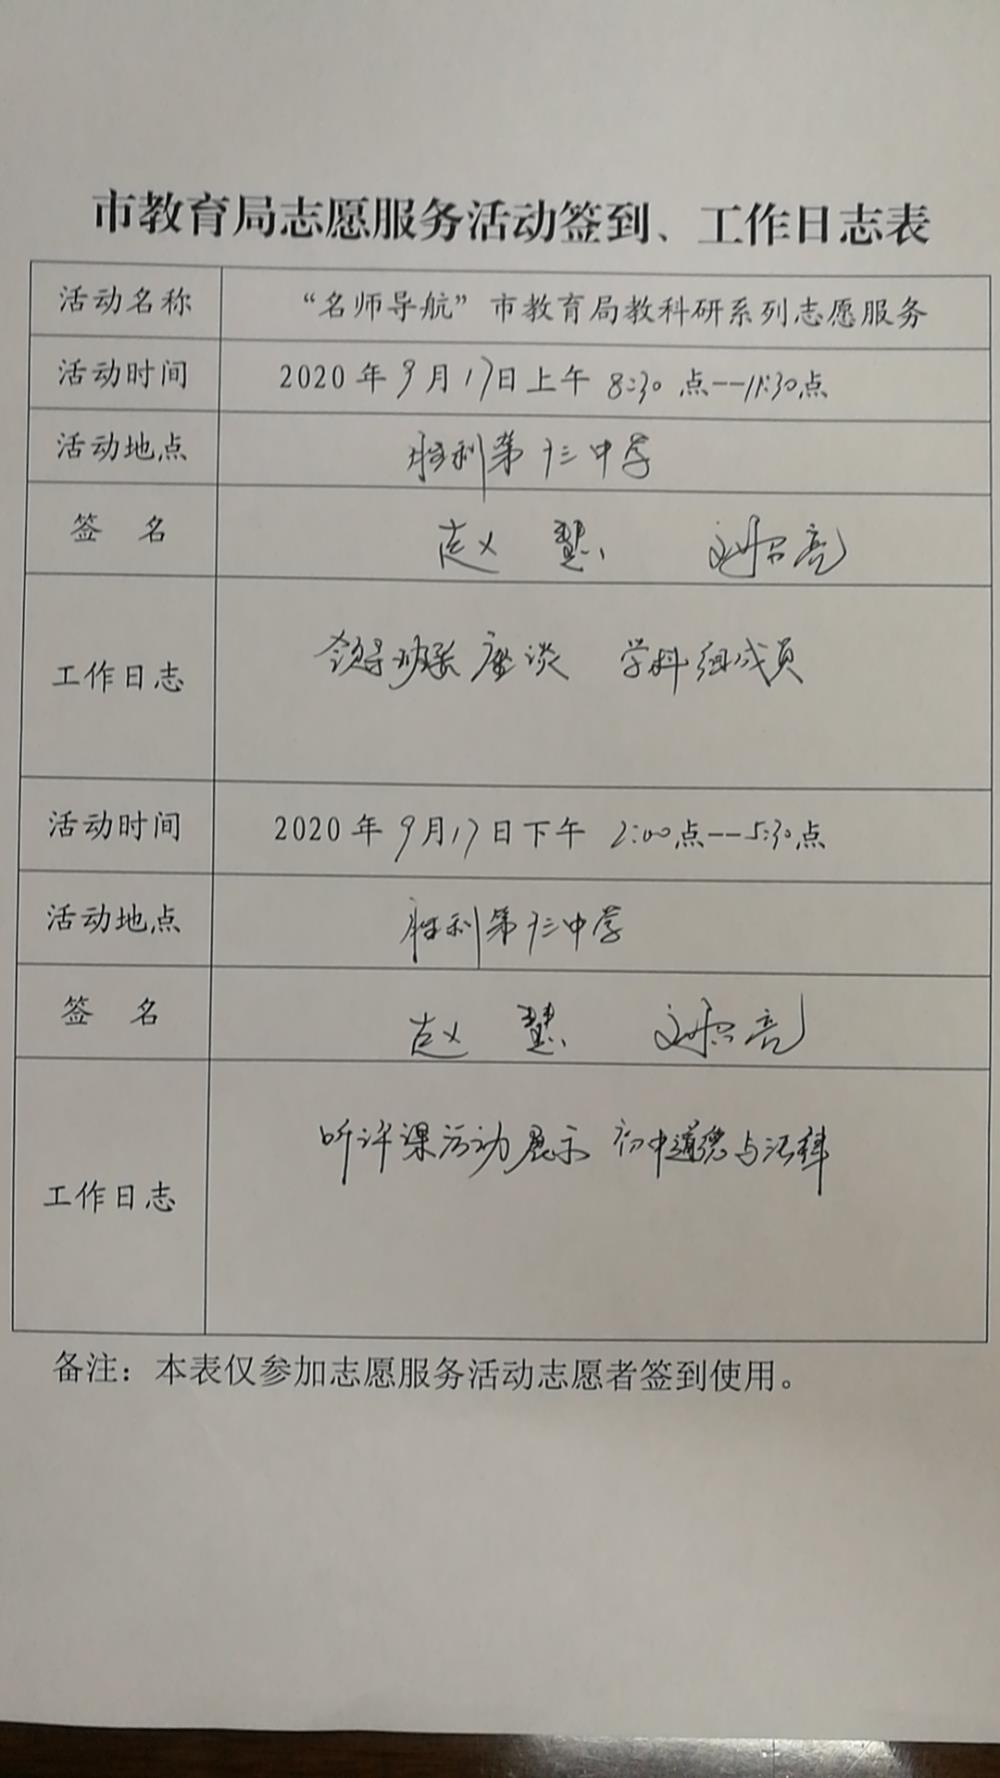 市教育局志愿服务活动签到、工作日志表
活动名称 “名师导航”市教育局教科研系列志愿服务
活动时间 2020年9月17日上午 8:30点--11:30点
活动地点 胜利第十三中学
签 名 赵慧 亮
工作日志 领导班子座谈 学科组成员
活动时间 2020年9月17日下午 2:00点--5:30点
活动地点 胜利第十三中学
签 名 赵慧 亮
工作日志 听评课活动展示 初中道德与法
备注：本表仅参加志愿服务活动志愿者签到使用。